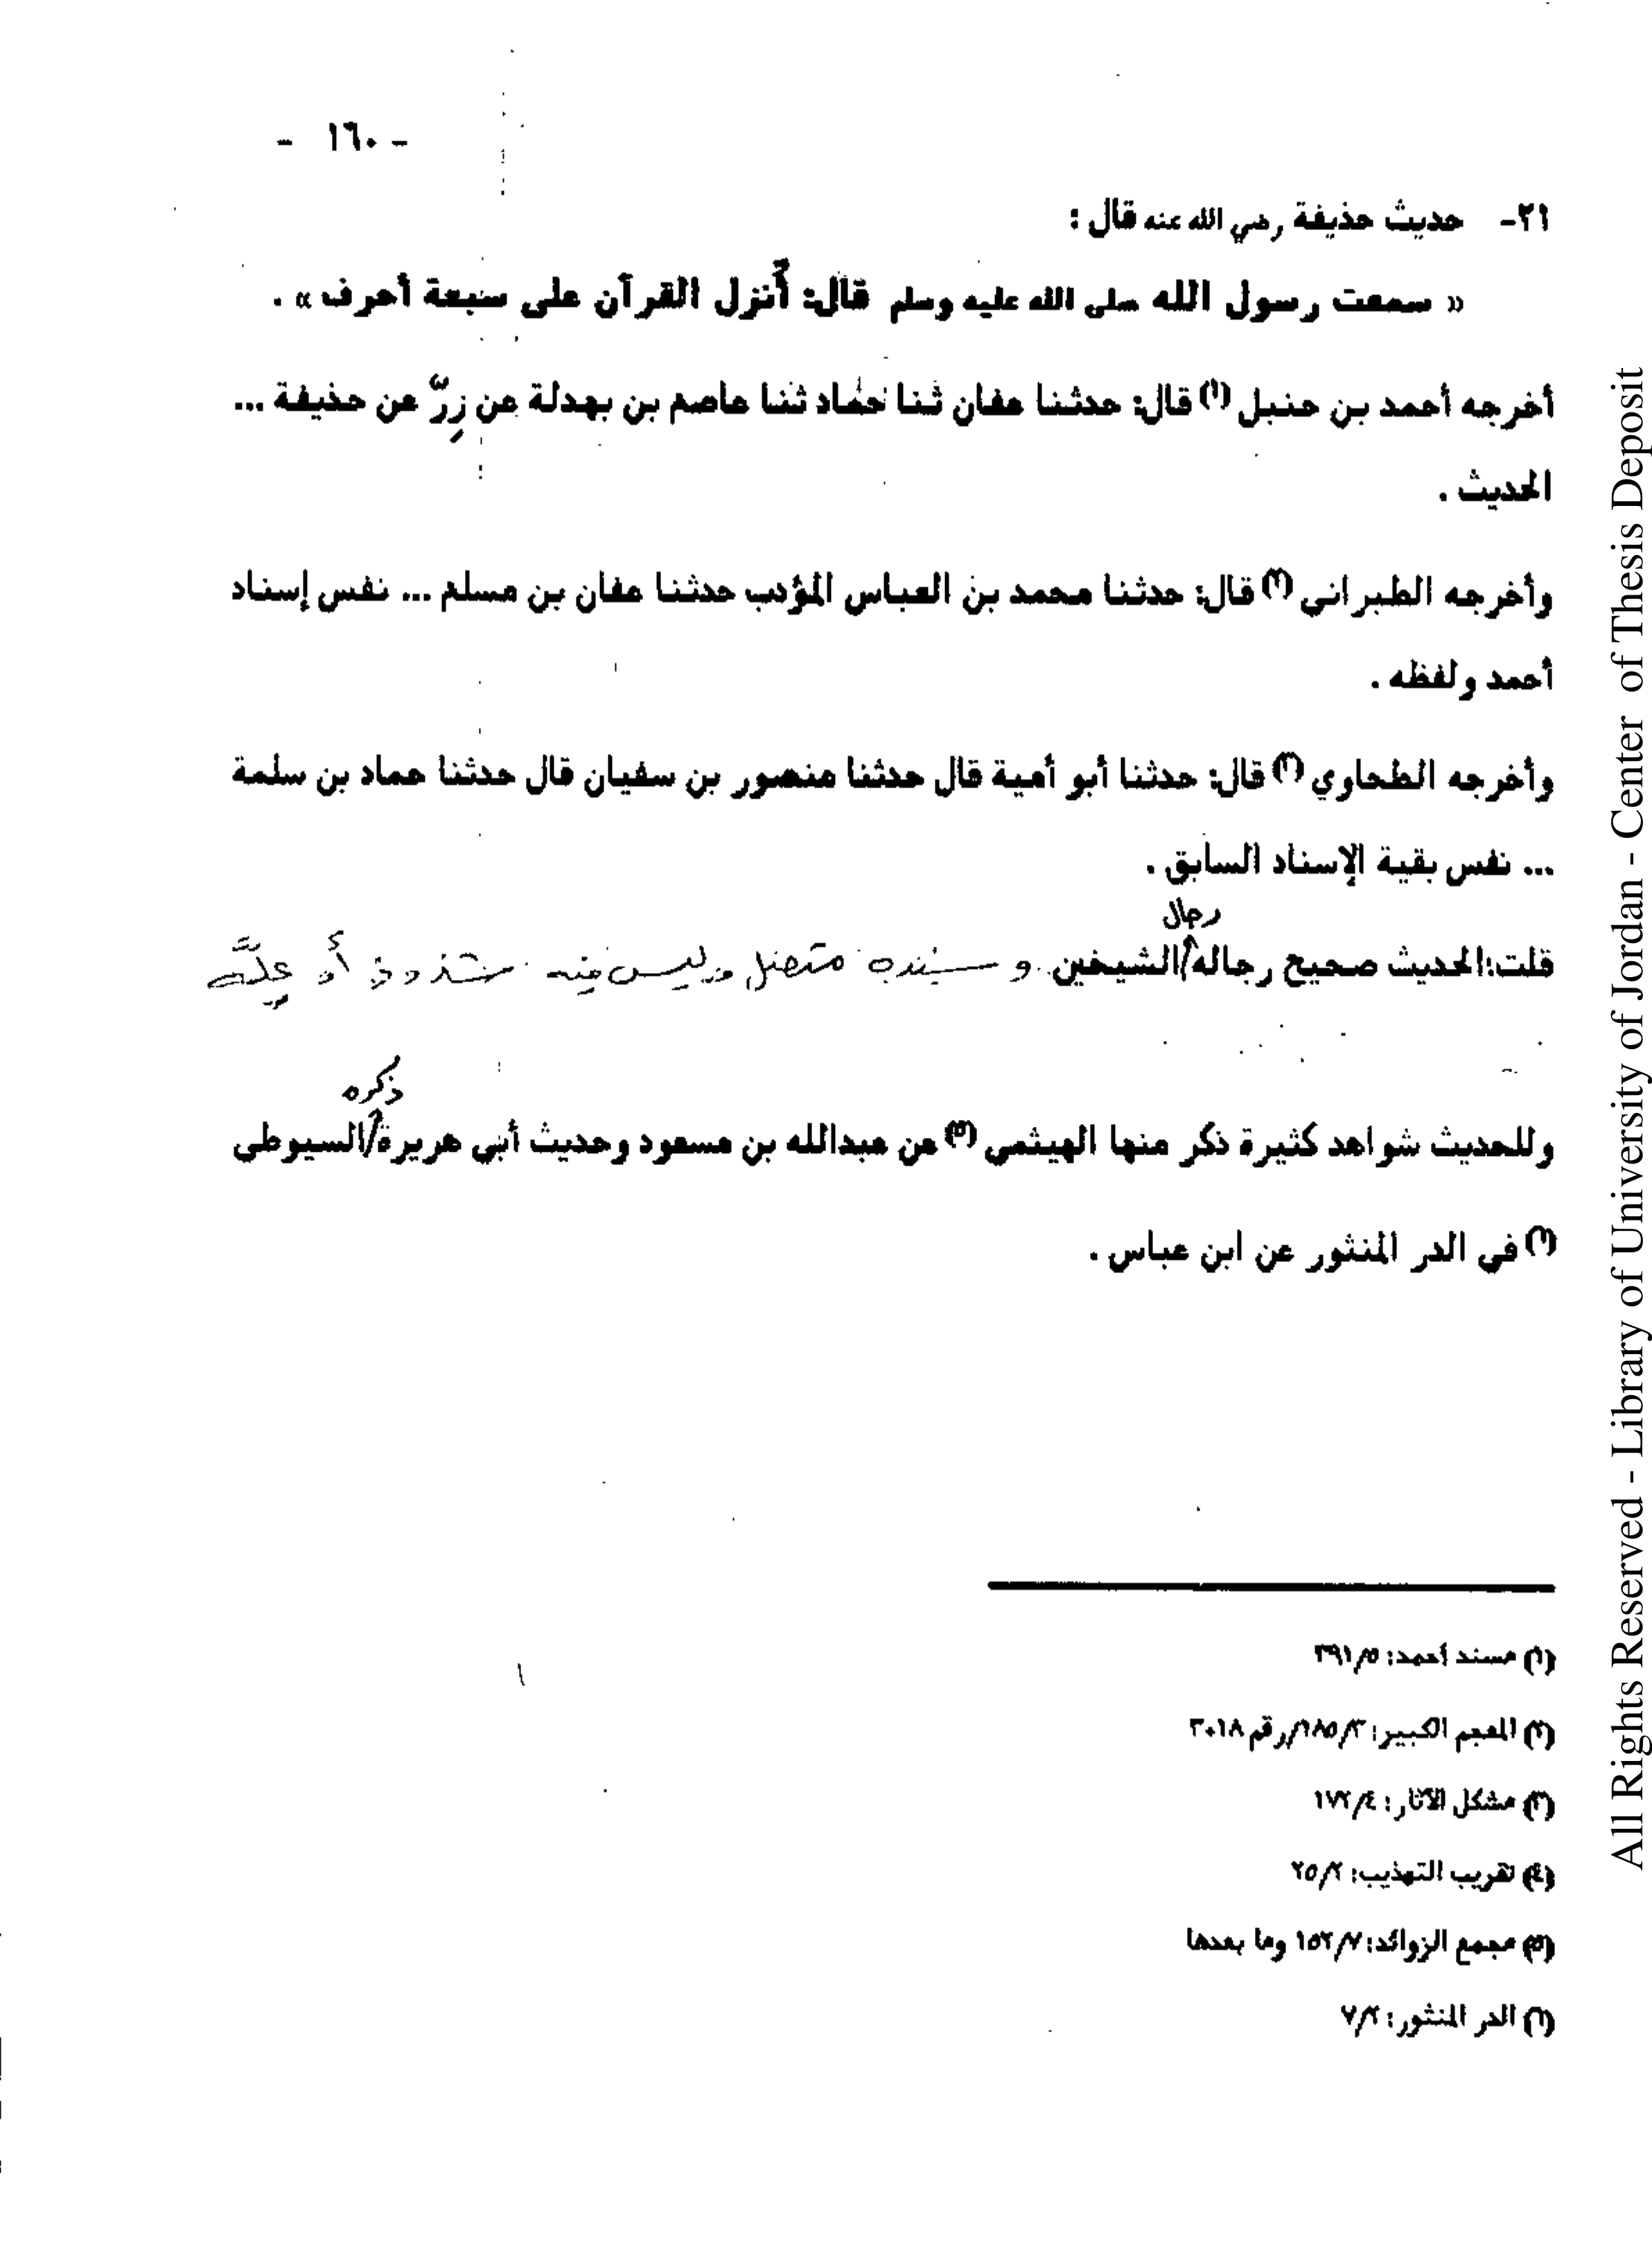 - ١٦٠ -
٢١- حديث حذيفة رضي الله عنه قال :
« سمعت رسول الله صلى الله عليه وسلم قال: أُنزل القرآن على سبعة أحرف » .
أخرجه أحمد بن حنبل (١) قال: حدثنا عفان ثنا حماد ثنا عاصم بن بهدلة عن زِرّ عن حذيفة ...
الحديث .
وأخرجه الطبراني (٢) قال: حدثنا محمد بن العباس المؤدب حدثنا عفان بن مسلم ... نفس إسناد
أحمد ولفظه .
وأخرجه الطحاوي (٣) قال: حدثنا أبو أمية قال حدثنا منصور بن سفيان قال حدثنا حماد بن سلمة
... نفس بقية الإسناد السابق .
رجال
قلت: الحديث صحيح رجاله/الشيخين وسنده متصل وليس فيه شذوذ أو علَّة
ذكره
وللحديث شواهد كثيرة ذكر منها الهيثمي (٥) عن عبدالله بن مسعود وحديث أبي هريرة/السيوطي
(٦) في الدر المنثور عن ابن عباس .
(١) مسند أحمد: ٣٩١/٥
(٢) المعجم الكبير: ١٨٥/٣/رقم ٣٠١٨
(٣) مشكل الآثار: ١٧٢/٤
(٤) تقريب التهذيب: ٢٥/٢
(٥) مجمع الزوائد: ١٥٢/٧ وما بعدها
(٦) الدر المنثور: ٧/٢
All Rights Reserved - Library of University of Jordan - Center of Thesis Deposit